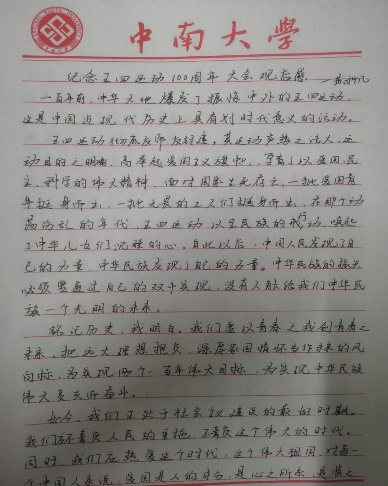 中南大学
纪念五四运动100周年大会观后感
一百年前,中华大地爆发了振惊中外的五四运动,
这是中国近现代历史上具有划时代意义的活动。
五四运动彻底反帝反封建,其运动声势之浩大,运
动目的之明确,高举起爱国主义旗帜,孕育了以爱国、民
主、科学的伟大精神,面对国家生死存亡,一批爱国青
年挺身而出,一批无畏的工人们挺身而出,在那个动
荡伤乱的年代,五四运动以全民族的行动,唤起
了中华儿女们沉睡的心。自此以后,中国人民发现了自
己的力量,中华民族发现了自己的力量。中华民族的振兴
必须要通过自己的双手实现,没有人能给我们中华民
族一个光明的未来。
铭记历史,我明白,我们要以青春之我创青春之
未来,把远大理想抱负,深厚家国情怀当作未来的风
向标,为实现两个一百年伟大目标,为实现中华民族
伟大复兴而奋斗。
如今,我们正处于社会主义建设的最好时期。
我们不辜负人民的重托,不辜负这个伟大的时代。
同时,我们应热爱这个时代,这个伟大祖国,对每一
个中国人来说,爱国是人的本分,是心之所系